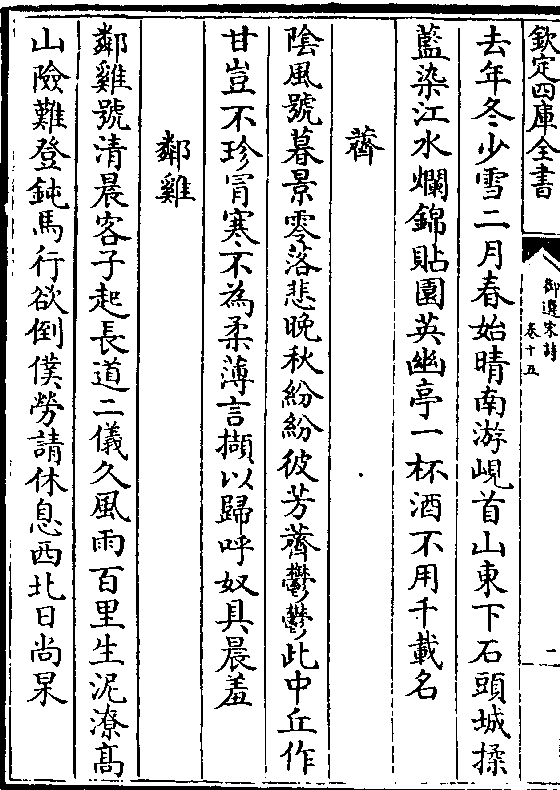 欽定四庫全書
御選宋詩
卷十五
二
去年冬少雪二月春始晴南游峴首山東下石頭城揉
藍染江水爛錦貼園英幽亭一杯酒不用千載名
薺
陰風號暮景零落悲晚秋紛紛彼芳薺鬱鬱此中丘作
甘豈不珍冐寒不為柔薄言擷以歸呼奴具晨羞
鄰雞
鄰雞號清晨客子起長道二儀久風雨百里生泥潦髙
山險難登鈍馬行欲倒僕勞請休息西北日尚杲